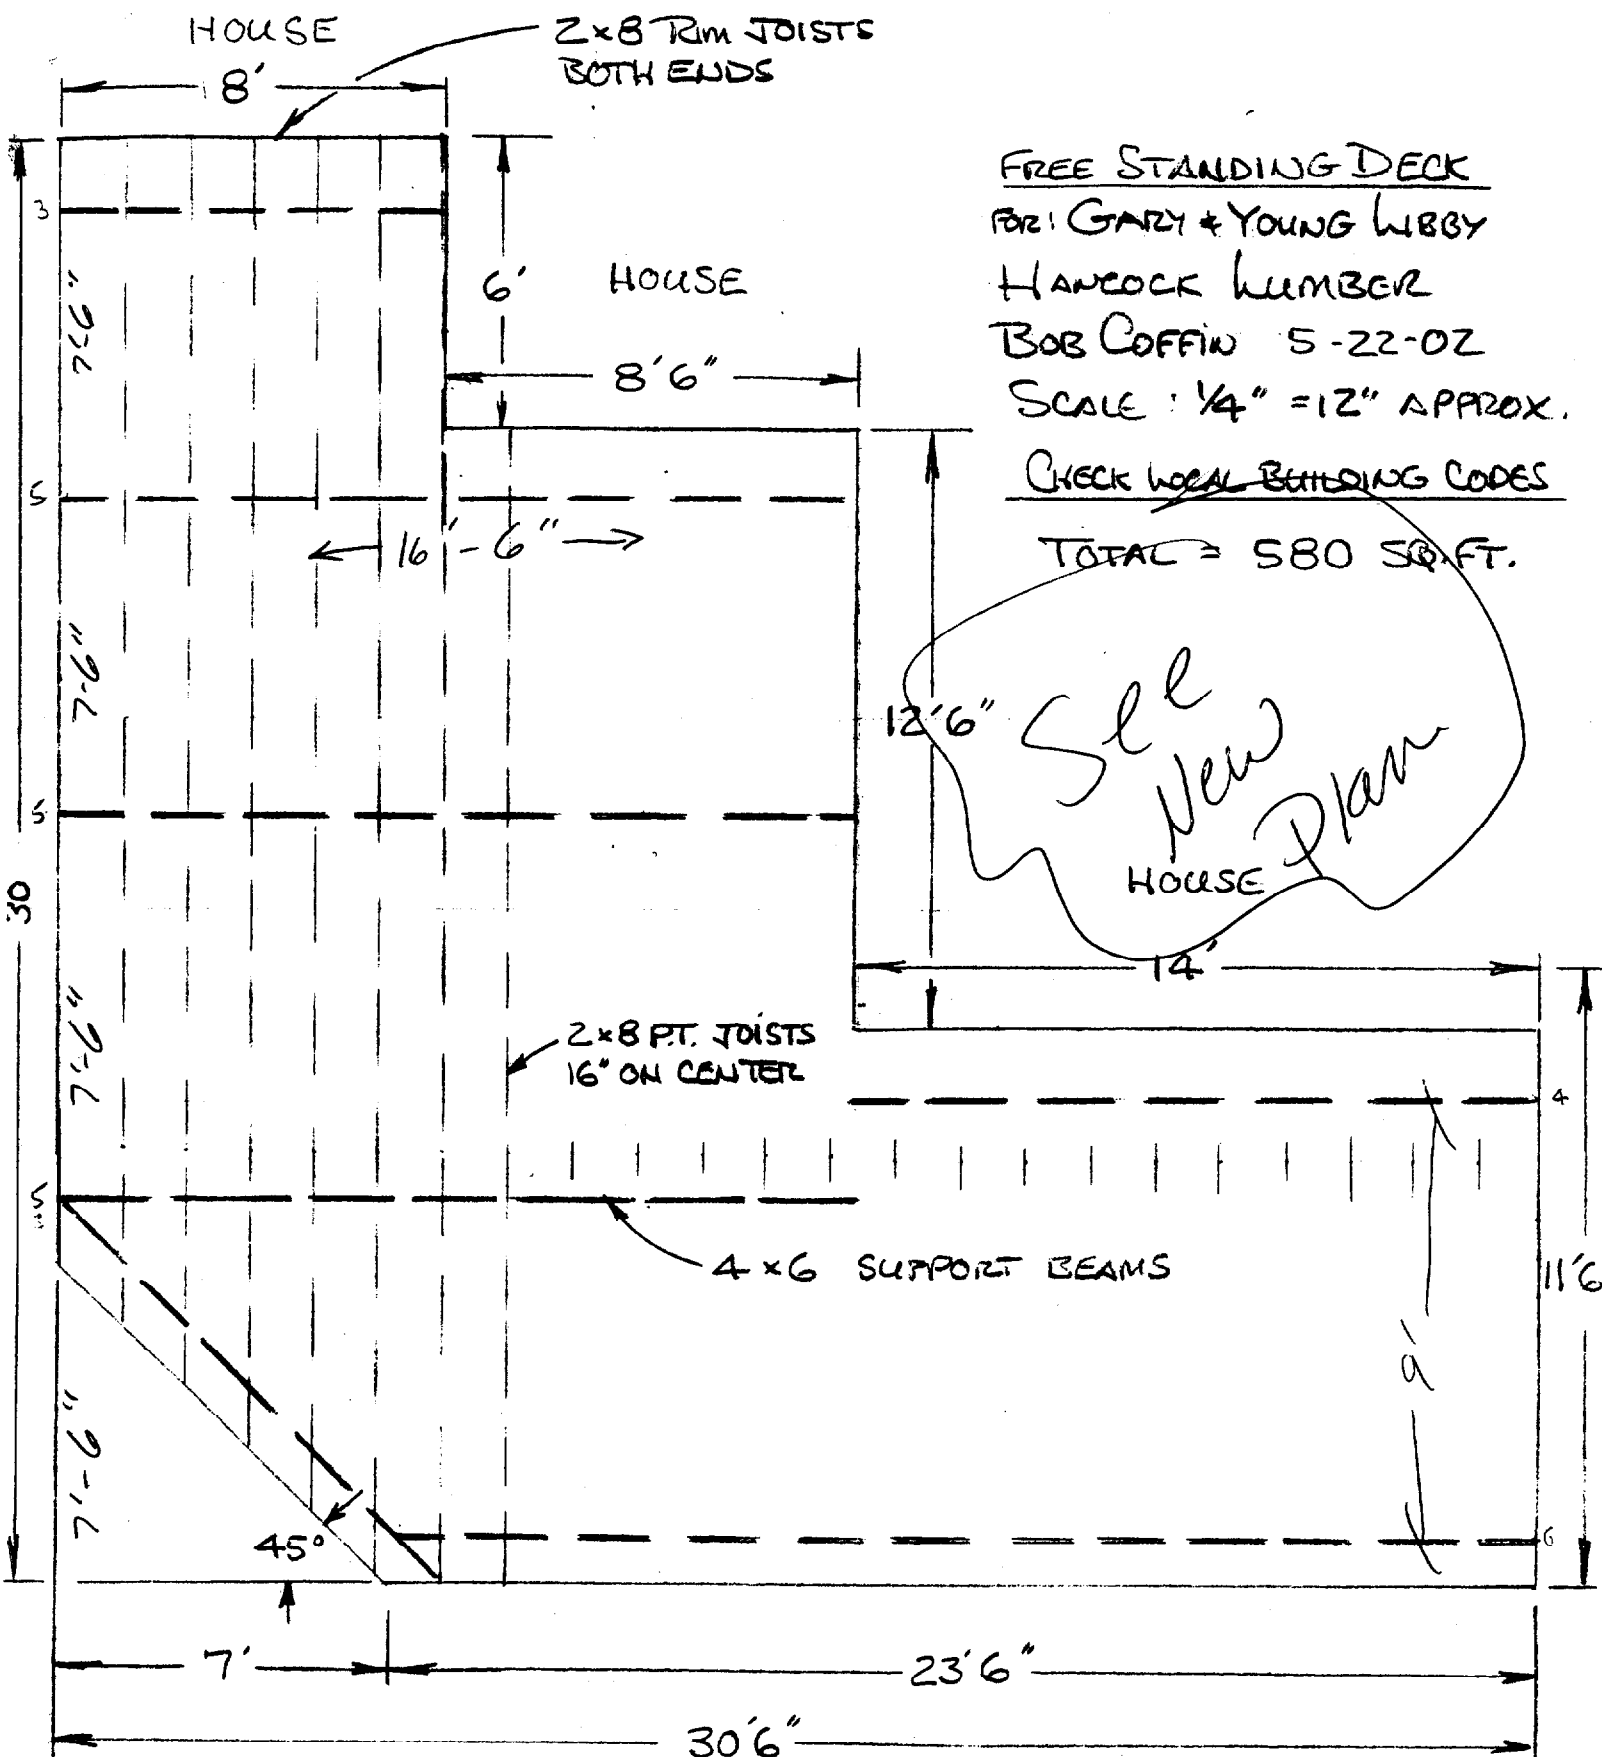 HOUSE
8'
2x8 Rim JOISTS
BOTH ENDS
FREE STANDING DECK
FOR: GARY & YOUNG LIBBY
HANCOCK LUMBER
BOB COFFIN 5-22-02
SCALE : 1/4" = 12" APPROX.
CHECK LOCAL BUILDING CODES
TOTAL = 580 SQ. FT.
3
7'-6"
6'
HOUSE
8'6"
5
16'-6"
7'-6"
12'6"
See
New
Plan
5
HOUSE
30
14'
7'-6"
2x8 P.T. JOISTS
16" ON CENTER
4
5
4x6 SUPPORT BEAMS
11'6
9'
7'-6"
45°
6
7'
23'6"
30'6"